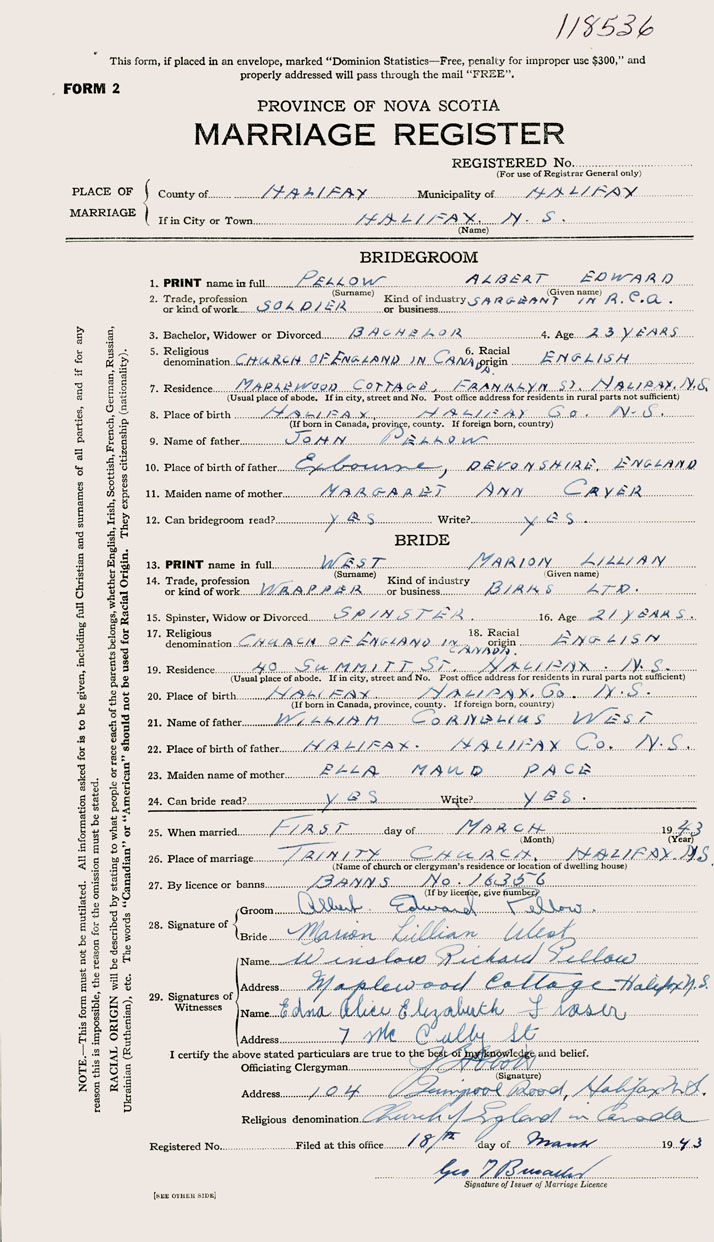 118536
This form, if placed in an envelope, marked “Dominion Statistics—Free, penalty for improper use $300,” and
properly addressed will pass through the mail “FREE”.
FORM 2
PROVINCE OF NOVA SCOTIA
MARRIAGE REGISTER
REGISTERED No.
(For use of Registrar General only)
PLACE OF MARRIAGE
County of HALIFAX Municipality of HALIFAX
If in City or Town HALIFAX, N.S.
(Name)
BRIDEGROOM
1. PRINT name in full PELLOW ALBERT EDWARD
(Surname) (Given name)
2. Trade, profession or kind of work SOLDIER Kind of industry or business SARGEANT IN R.C.A.
3. Bachelor, Widower or Divorced BACHELOR 4. Age 23 YEARS
5. Religious denomination CHURCH OF ENGLAND IN CANADA. 6. Racial origin ENGLISH
7. Residence MAPLEWOOD COTTAGE, FRANKLYN ST. HALIFAX. N.S.
(Usual place of abode. If in city, street and No. Post office address for residents in rural parts not sufficient)
8. Place of birth HALIFAX, HALIFAX Co. N.S.
(If born in Canada, province, county. If foreign born, country)
9. Name of father JOHN PELLOW
10. Place of birth of father Exbourne, DEVONSHIRE, ENGLAND
11. Maiden name of mother MARGARET ANN CRYER
12. Can bridegroom read? YES Write? YES.
BRIDE
13. PRINT name in full WEST MARION LILLIAN
(Surname) (Given name)
14. Trade, profession or kind of work WRAPPER Kind of industry or business BIRKS LTD.
15. Spinster, Widow or Divorced SPINSTER. 16. Age 21 YEARS.
17. Religious denomination CHURCH OF ENGLAND IN CANADA. 18. Racial origin ENGLISH
19. Residence 40 SUMMITT ST. HALIFAX. N.S.
(Usual place of abode. If in city, street and No. Post office address for residents in rural parts not sufficient)
20. Place of birth HALIFAX HALIFAX. Co. N.S.
(If born in Canada, province, county. If foreign born, country)
21. Name of father WILLIAM CORNELIUS WEST
22. Place of birth of father HALIFAX. HALIFAX Co. N.S.
23. Maiden name of mother ELLA MAUD PACE
24. Can bride read? YES Write? YES.
25. When married FIRST day of MARCH 1943
(Month) (Year)
26. Place of marriage TRINITY CHURCH, HALIFAX. N.S.
(Name of church or clergyman's residence or location of dwelling house)
27. By licence or banns BANNS No. 16356
(If by licence, give number)
28. Signature of
Groom Albert Edward Pellow.
Bride Marion Lillian West
29. Signatures of Witnesses
Name Winslow Richard Pellow
Address Maplewood Cottage Halifax N.S.
Name Edna Alice Elizabeth Fraser
Address 7 Mc Cully St
I certify the above stated particulars are true to the best of my knowledge and belief.
Officiating Clergyman
(Signature)
Address 104 Road, Halifax N.S.
Religious denomination Church of England in Canada
Registered No. Filed at this office 18th day of March 1943
Geo
Signature of Issuer of Marriage Licence
[SEE OTHER SIDE]
NOTE.—This form must not be mutilated. All information asked for is to be given, including full Christian and surnames of all parties, and if for any
reason this is impossible, the reason for the omission must be stated.
RACIAL ORIGIN will be described by stating to what people or race each of the parents belongs, whether English, Irish, Scottish, French, German, Russian,
Ukrainian (Ruthenian), etc. The words “Canadian” or “American” should not be used for Racial Origin. They express citizenship (nationality).